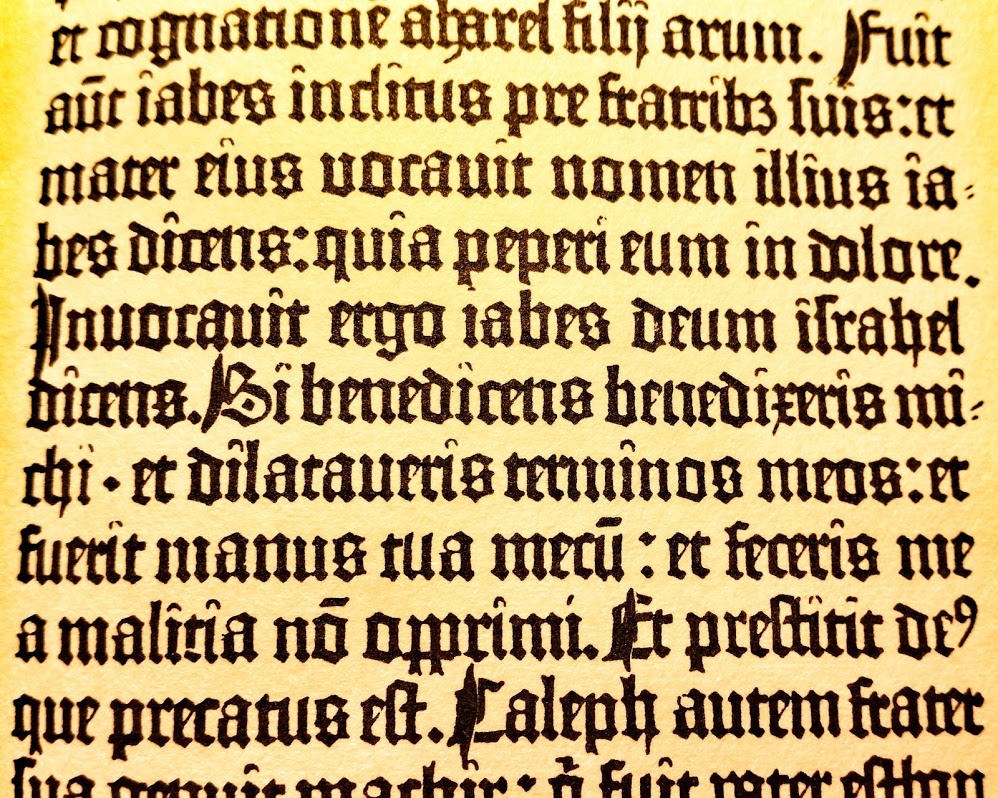 et cognatione aharel filij arum. Fuit
aūt iabes inclitus pre fratribꝫ suis: et
mater eius vocavit nomen illius ia-
bes dicens: quia peperi eum in dolore.
Invocavit ergo iabes deum israhel
dicens. Si benedicens benedixeris mi-
chi · et dilataveris terminos meos: et
fuerit manus tua mecū: et feceris me
a malitia nō opprimi. Et prestitit deꝰ
que precatus est. Caleph autem frater
sua genuit machir: q̄ fuit pater esthon